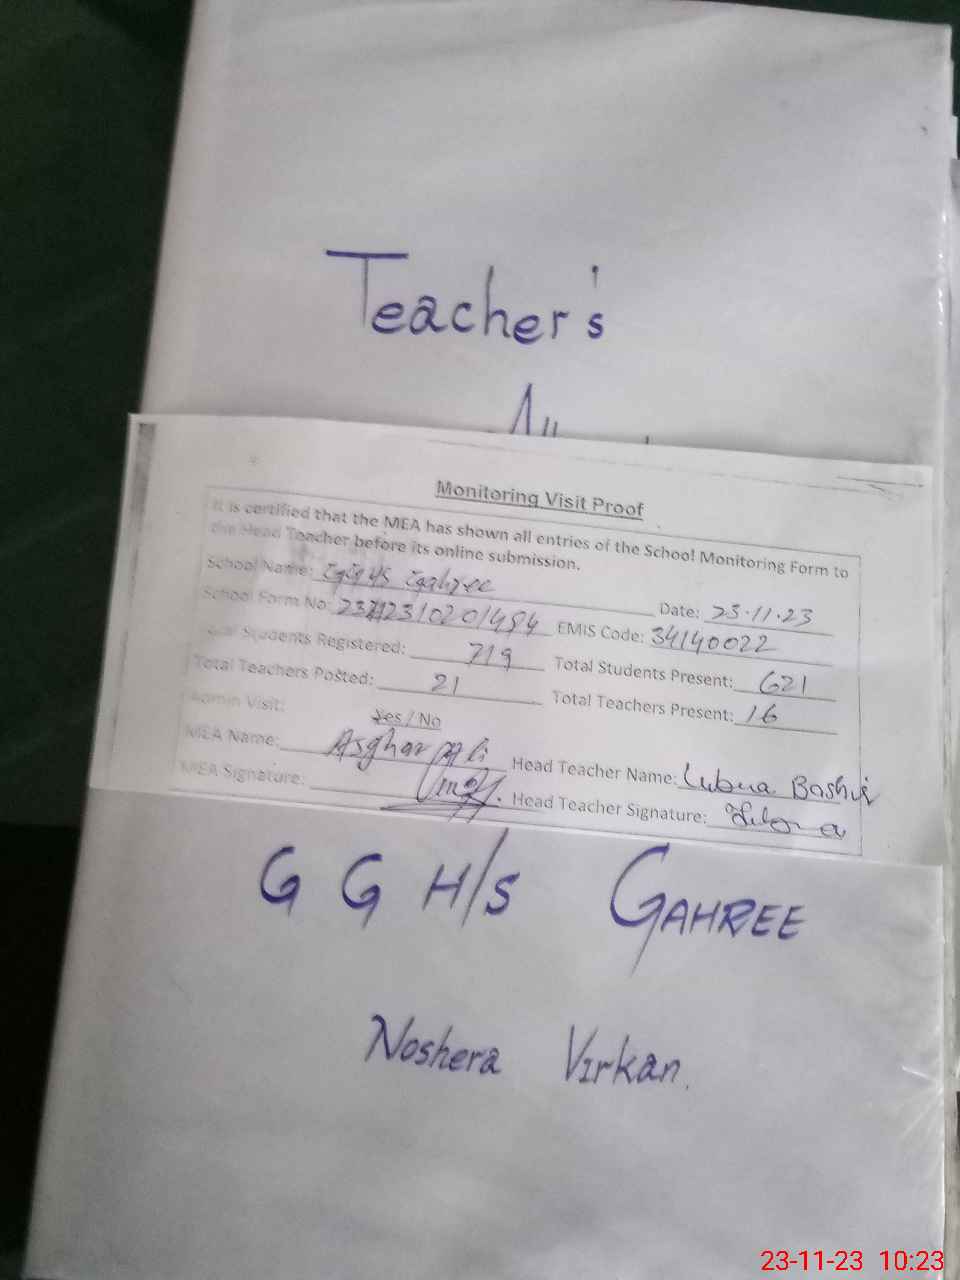 Teacher's
Monitoring Visit Proof
It is certified that the MEA has shown all entries of the School Monitoring Form to
the Head Teacher before its online submission.
School Name: GGHS Gahree
Date: 23.11.23
School Form No: EMIS Code: 34140022
Total Students Registered: 719 Total Students Present: 621
Total Teachers Posted: 21 Total Teachers Present: 16
Admin Visit: Yes / No
MEA Name: Asghar Ali Head Teacher Name: Lubna Bashir
MEA Signature: Head Teacher Signature: Lubna
G G H/S GAHREE
Noshera Virkan.
23-11-23 10:23